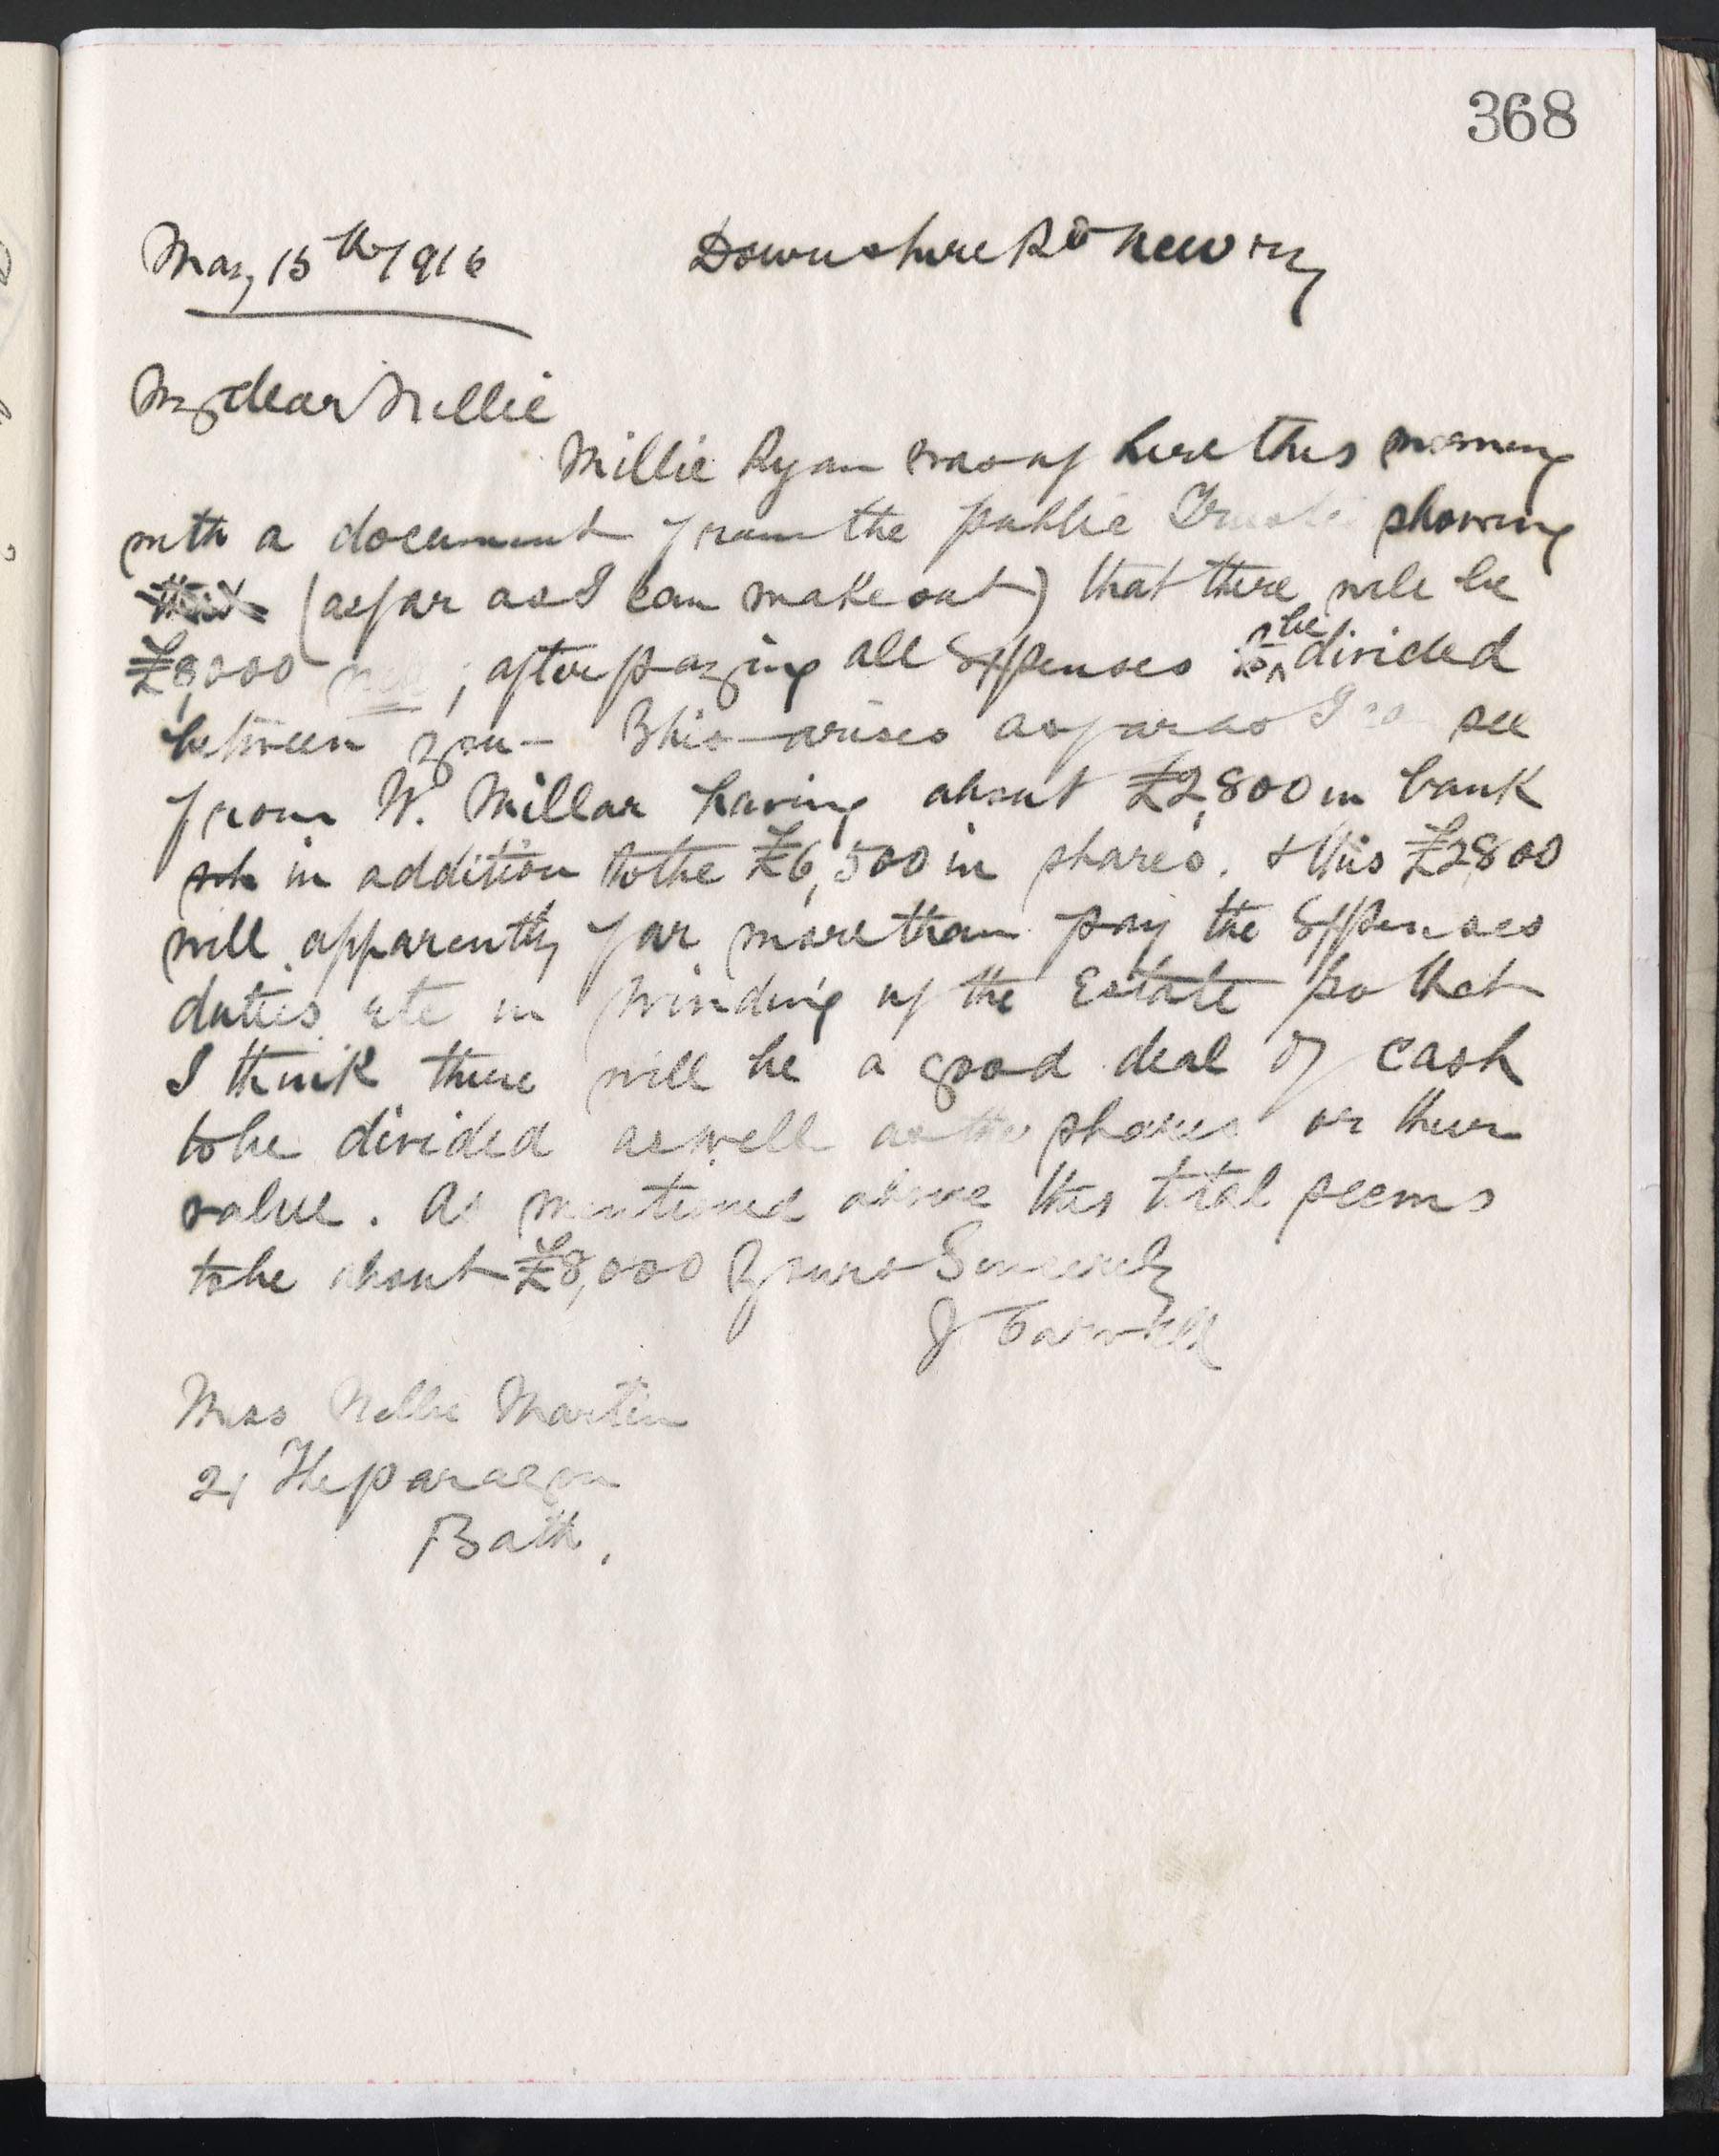 368
May 15th 1916 Downshire Rd Newry
My dear Nellie
Millie Ryan was up here this morning
with a document from the public Trustee showing
that (as far as I can make out) that there will be
£8,000 net, after paying all Expenses to be divided
between you - This arises as far as I can see
from W. Millar having about £2,800 in bank
in addition to the £6,500 in shares. & this £2800
will apparently far more than pay the Expenses
duties etc in winding up the Estate so that
I think there will be a good deal of cash
to be divided as well as the shares or their
value. As mentioned above this total seems
to be about £8,000 Yours Sincerely
J
Miss Nellie Martin
21 The paragon
Bath.